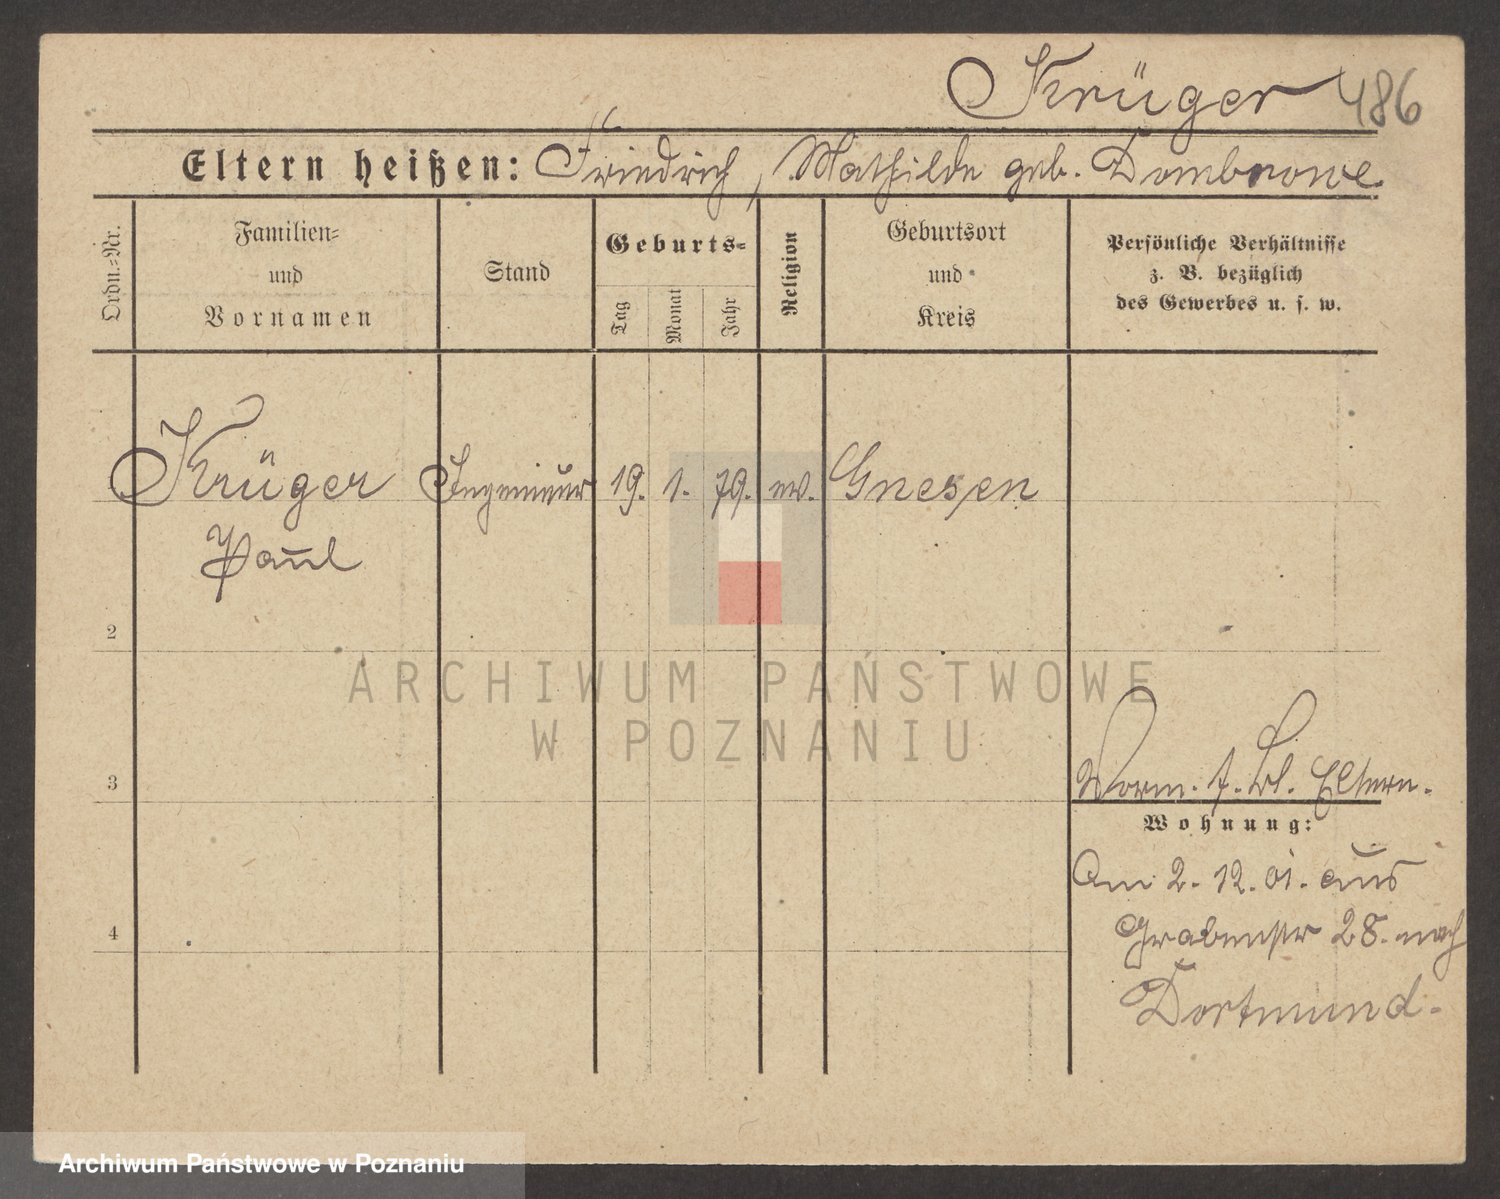 Krüger 486
Eltern heißen: Friedrich, Mathilde geb. Dombrowe
Ordn.-Nr.
Familien-
und
Vornamen
Stand
Geburts-
Tag
Monat
Jahr
Religion
Geburtsort
und
Kreis
Persönliche Verhältnisse
z. B. bezüglich
des Gewerbes u. s. w.
Krüger Ingenieur 19. 1. 79. ev. Gnesen
Paul
2
3
4
ARCHIWUM PAŃSTWOWE
W POZNANIU
Vorm. f. Bl. Eltern.
Wohnung:
Am 2. 12. 01. aus
Grabenstr 28. nach
Dortmund.
Archiwum Państwowe w Poznaniu